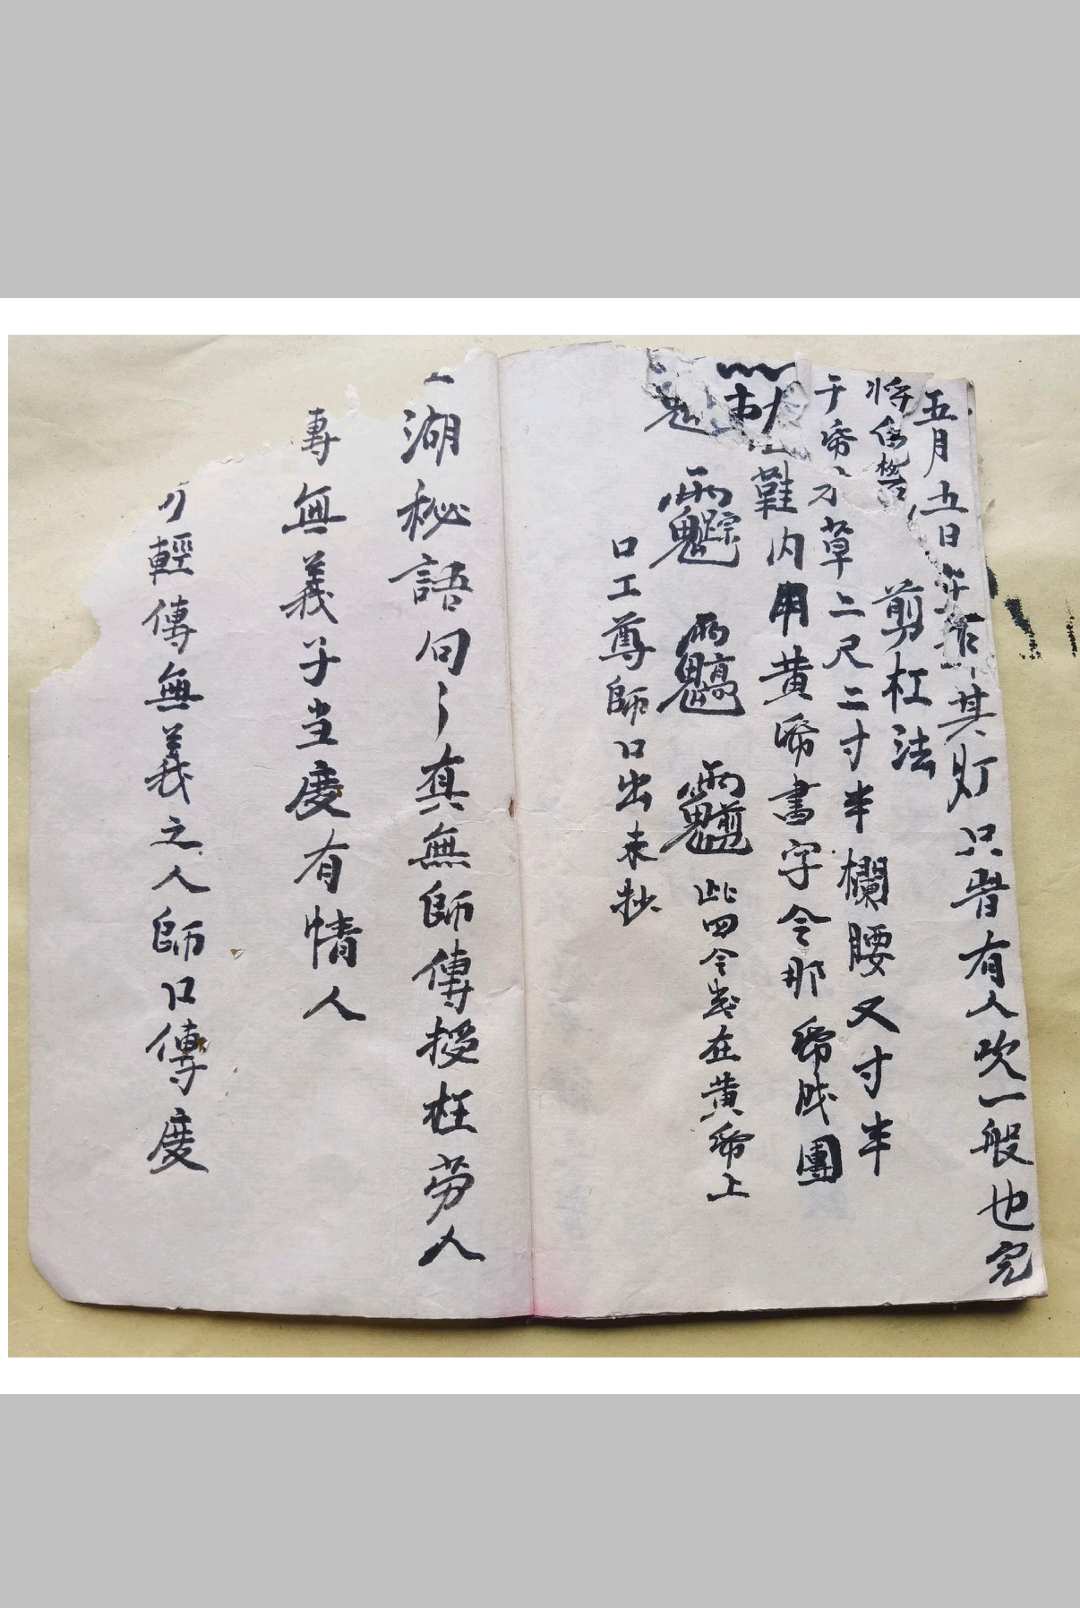 五月五日午 其灯只者有人吹一般也完
將
剪杠法
于 草二尺二寸半欄腰又寸半
鞋内用黄帋書字令那帋成團
此四令 在黄帋上
口工尊師口出未抄
湖秘語句〻真無師傳授枉劳人
專無義子当度有情人
輕傳無義之人師口傳度